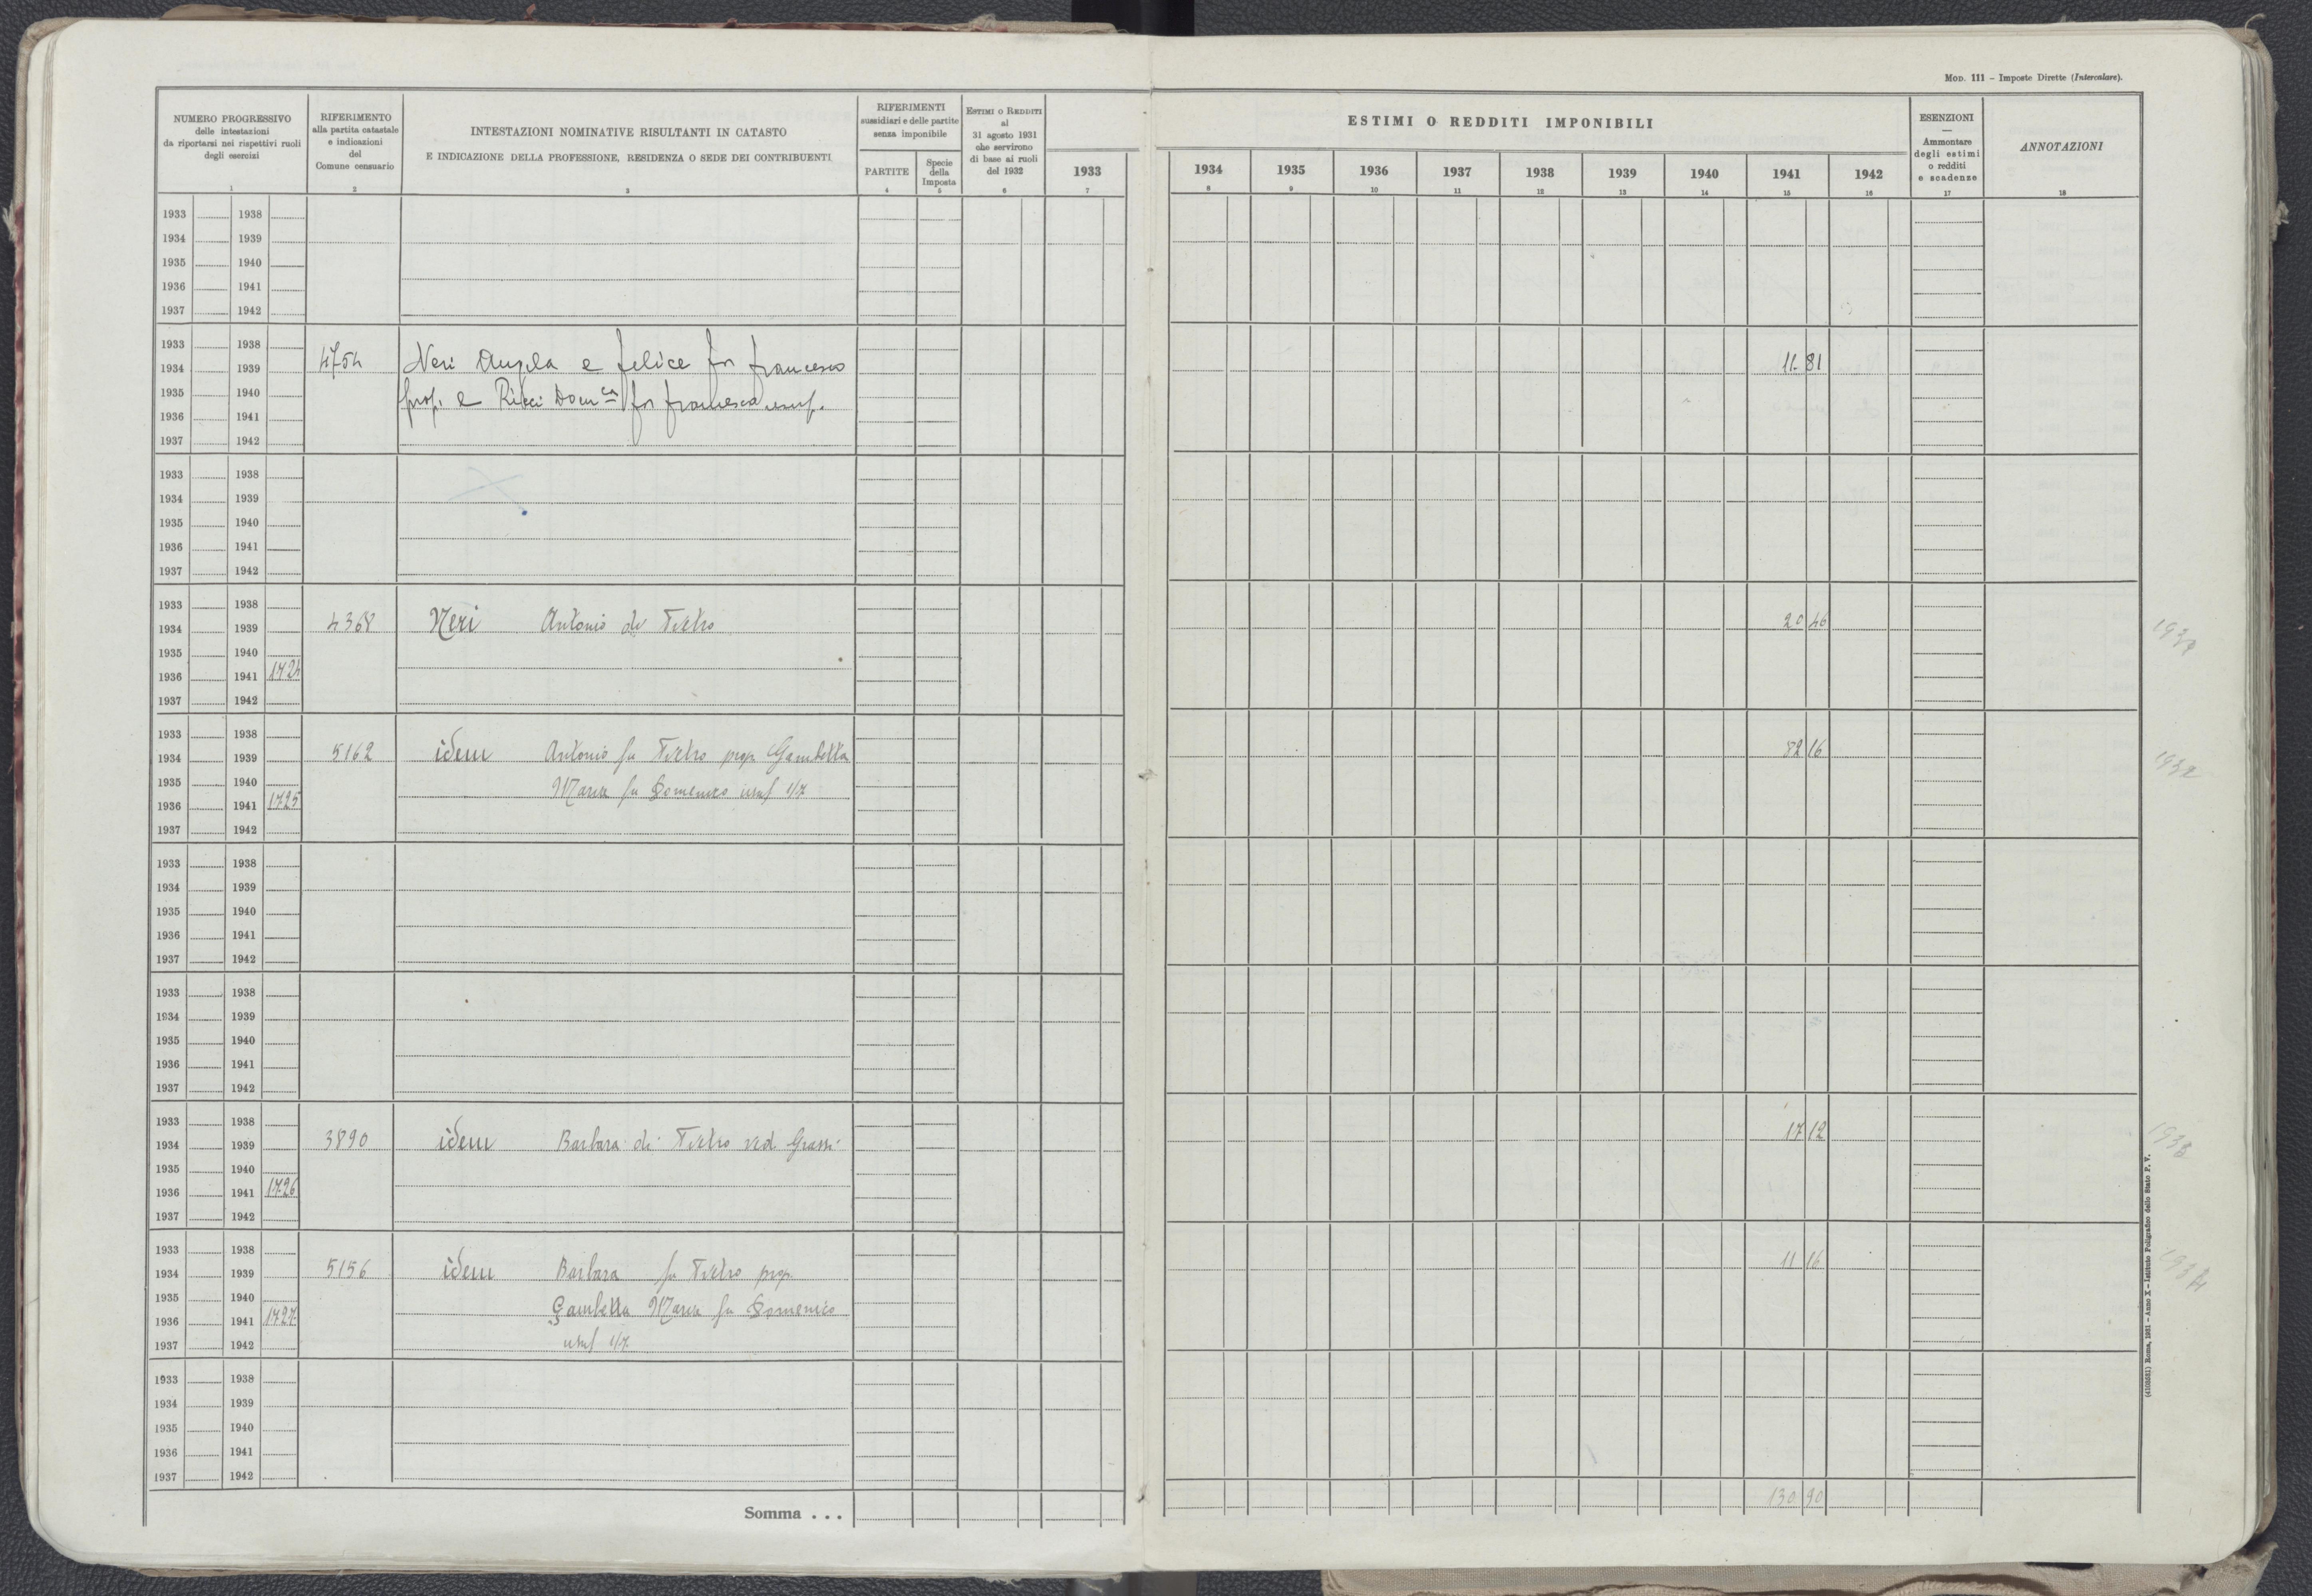 Mod. 111 – Imposte Dirette (Intercalare).
NUMERO PROGRESSIVO
delle intestazioni
da riportarsi nei rispettivi ruoli
degli esercizi
1
RIFERIMENTO
alla partita catastale
e indicazioni
del
Comune censuario
2
INTESTAZIONI NOMINATIVE RISULTANTI IN CATASTO
E INDICAZIONE DELLA PROFESSIONE, RESIDENZA O SEDE DEI CONTRIBUENTI
3
RIFERIMENTI
sussidiari e delle partite
senza imponibile
PARTITE
4
Specie
della
Imposta
5
Estimi o Redditi
al
31 agosto 1931
che servirono
di base ai ruoli
del 1932
6
1933
7
ESTIMI O REDDITI IMPONIBILI
1934 1935 1936 1937 1938 1939 1940 1941 1942
8 9 10 11 12 13 14 15 16
ESENZIONI
—
Ammontare
degli estimi
o redditi
e scadenze
17
ANNOTAZIONI
18
1933 1938
1934 1939
1935 1940
1936 1941
1937 1942
1933 1938
1934 1939 4754 Neri Angela e felice fu francesco 11.81
1935 1940 prop. e Ricci Dom.ca fu francesco usuf.
1936 1941
1937 1942
1933 1938
1934 1939
1935 1940
1936 1941
1937 1942
1933 1938
1934 1939 4368 Neri Antonio di Pietro 20 46
1935 1940
1936 1941 1424
1937 1942
1933 1938
1934 1939 5162 idem Antonio fu Pietro prop. Gambella 82 16 1932
1935 1940 Maria fu Domenico usuf 1/7
1936 1941 1425
1937 1942
1933 1938
1934 1939
1935 1940
1936 1941
1937 1942
1933 1938
1934 1939
1935 1940
1936 1941
1937 1942
1933 1938
1934 1939 3890 idem Barbara di Pietro ved. Grassi 17 12 1933
1935 1940
1936 1941 1426
1937 1942
1933 1938
1934 1939 5156 idem Barbara fu Pietro prop. 11 16 1934
1935 1940 Gambella Maria fu Domenico
1936 1941 1427
1937 1942 usuf 1/7
1933 1938
1934 1939
1935 1940
1936 1941
1937 1942
Somma . . . 130 90
(4103531) Roma, 1931 – Anno X – Istituto Poligrafico dello Stato P. V.